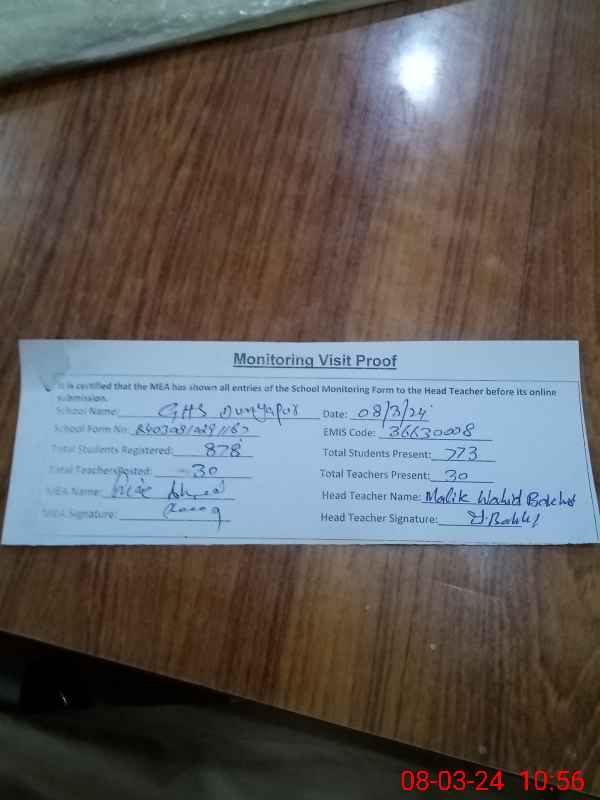 Monitoring Visit Proof
It is certified that the MEA has shown all entries of the School Monitoring Form to the Head Teacher before its online
submission.
School Name: GHS Dunyapur Date: 08/3/24
School Form No: EMIS Code: 36630008
Total Students Registered: 878 Total Students Present: 773
Total Teachers Posted: 30 Total Teachers Present: 30
MEA Name: Ahmed Head Teacher Name: Malik Wahid Bakhsh
MEA Signature: Head Teacher Signature:
08-03-24 10:56